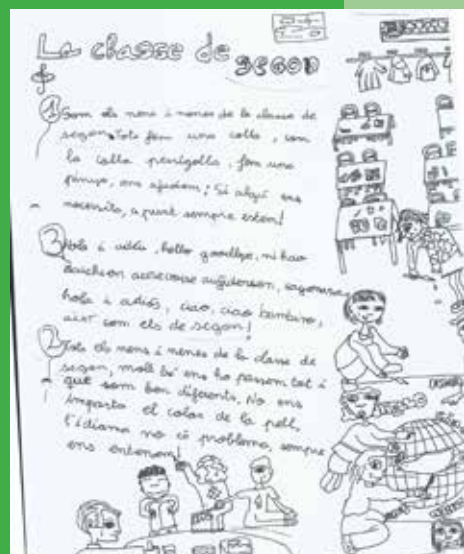 La classe de segon
1 Som els nens i nenes de la classe de
segon. Tots fem una colla, som
la colla perigolla, fem una
pinya, ens ajudem; Si algú ens
necessita, a punt sempre estem!
3 Hola i adéu, hello goodbye, ni hao
hola i adiós, ciao, ciao bambino,
així som els de segon!
2 Tots els nens i nenes de la classe de
segon, molt bé ens ho passem tot i
que som ben diferents. No ens
importa el color de la pell,
l'idioma no és problema, sempre
ens entenem!